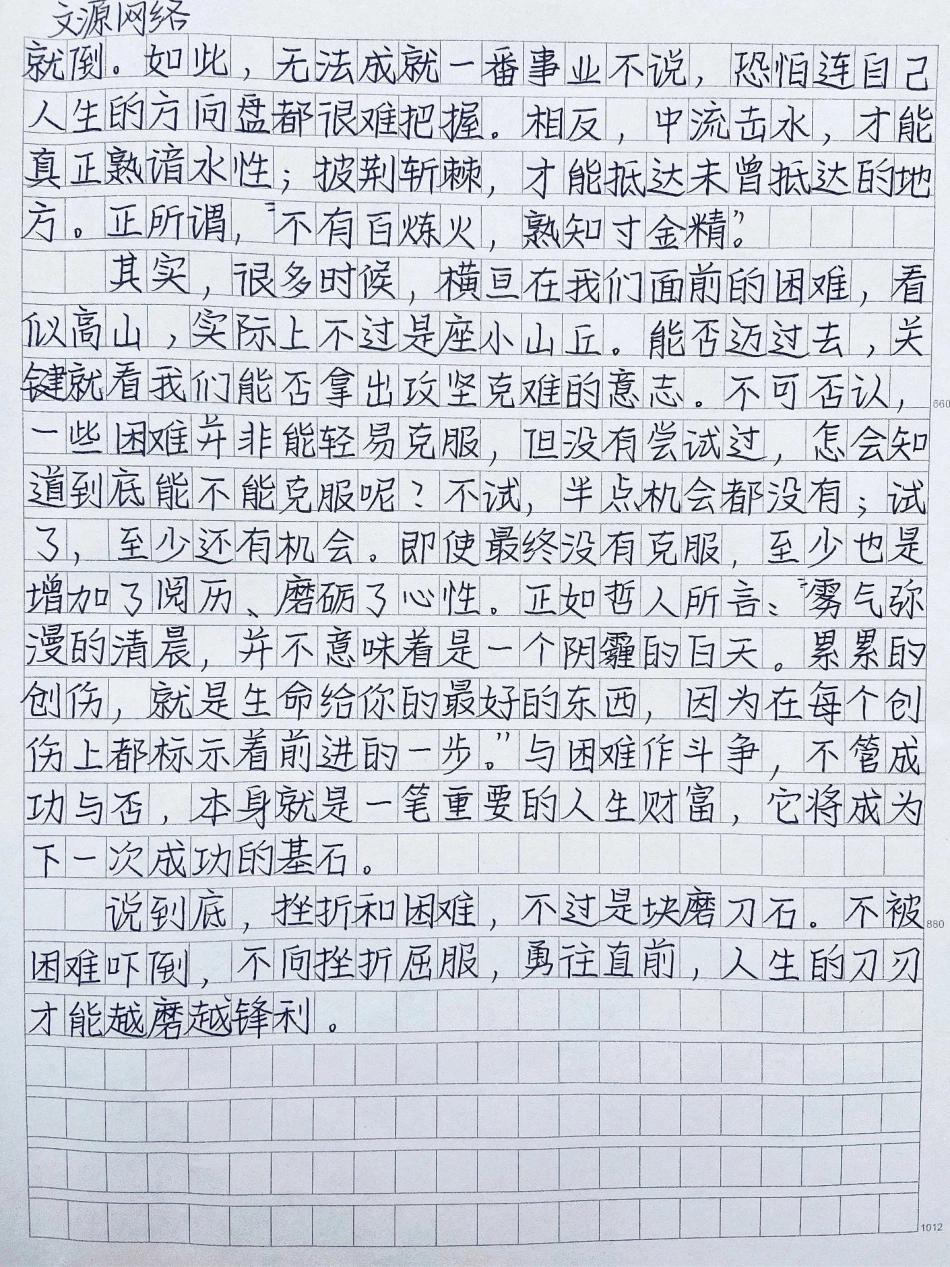 文源网络
就倒。如此，无法成就一番事业不说，恐怕连自己
人生的方向盘都很难把握。相反，中流击水，才能
真正熟谙水性；披荆斩棘，才能抵达未曾抵达的地
方。正所谓，“不有百炼火，熟知寸金精”。
其实，很多时候，横亘在我们面前的困难，看
似高山，实际上不过是座小山丘。能否迈过去，关
键就看我们能否拿出攻坚克难的意志。不可否认，
660
一些困难并非能轻易克服，但没有尝试过，怎会知
道到底能不能克服呢？不试，半点机会都没有；试
了，至少还有机会。即使最终没有克服，至少也是
增加了阅历、磨砺了心性。正如哲人所言：“雾气弥
漫的清晨，并不意味着是一个阴霾的白天。累累的
创伤，就是生命给你的最好的东西，因为在每个创
伤上都标示着前进的一步。”与困难作斗争，不管成
功与否，本身就是一笔重要的人生财富，它将成为
下一次成功的基石。
说到底，挫折和困难，不过是块磨刀石。不被
880
困难吓倒，不向挫折屈服，勇往直前，人生的刀刃
才能越磨越锋利。
1012